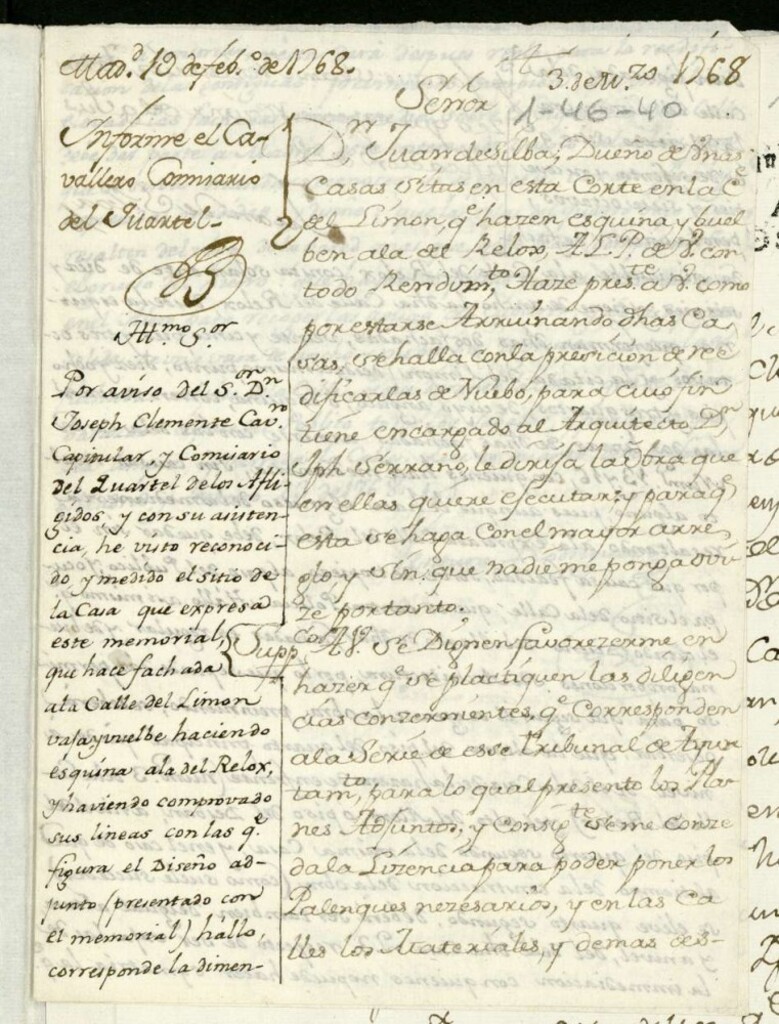 Mad.d 19 de feb.o de 1768.
3. de M.zo 1768
Señor
1-46-40
Informe el Ca-
vallero Comisario
del Quartel-
Ill.mo S.or
Por aviso del S.or D.n
Joseph Clemente Cav.ro
Capitular, y Comisario
del Quartel de los Afli-
gidos, y con su asisten-
cia, he visto reconoci-
do y medido el sitio de
la Casa que expresa
este memorial,
que hace fachada
a la Calle del Limon
vaja, y vuelbe haciendo
esquina a la del Relox,
y haviendo comprovado
sus lineas con las q.e
figura el Diseño ad-
junto (presentado con
el memorial) hallo,
corresponde la dimen-
D.n Juan de Silba, Dueño de unas
Casas sitas en esta Corte en la C.e
del Limon, q.e hazen esquina y buel
ben a la del Relox, A L. P. de V. con
todo Rendim.to Haze pres.te a V. como
por estarse Arruinando dhas Ca
sas, se halla con la presicion de ree
dificarlas de Nuebo, para cuio fin
tiene encargado al Arquitecto D.n
Jph Serrano, le dirija la Obra que
en ellas quiere ejecutar; y para q.e
esta se haga con el mayor arre
glo y sin que nadie me ponga
por tanto.
Supp.co A V. se Dignen favorezerme en
hazer q.e se plactiquen las diligen
cias conzernientes, q.e Corresponden
a la Serie de esse tribunal de Ayun
tam.to, para lo qual presento los Pla-
nes Adjuntos, y Consig.te se me conze
da la Lizencia para poder poner los
Palenques nezesarios, y en las Ca
lles los Materiales, y demas des-